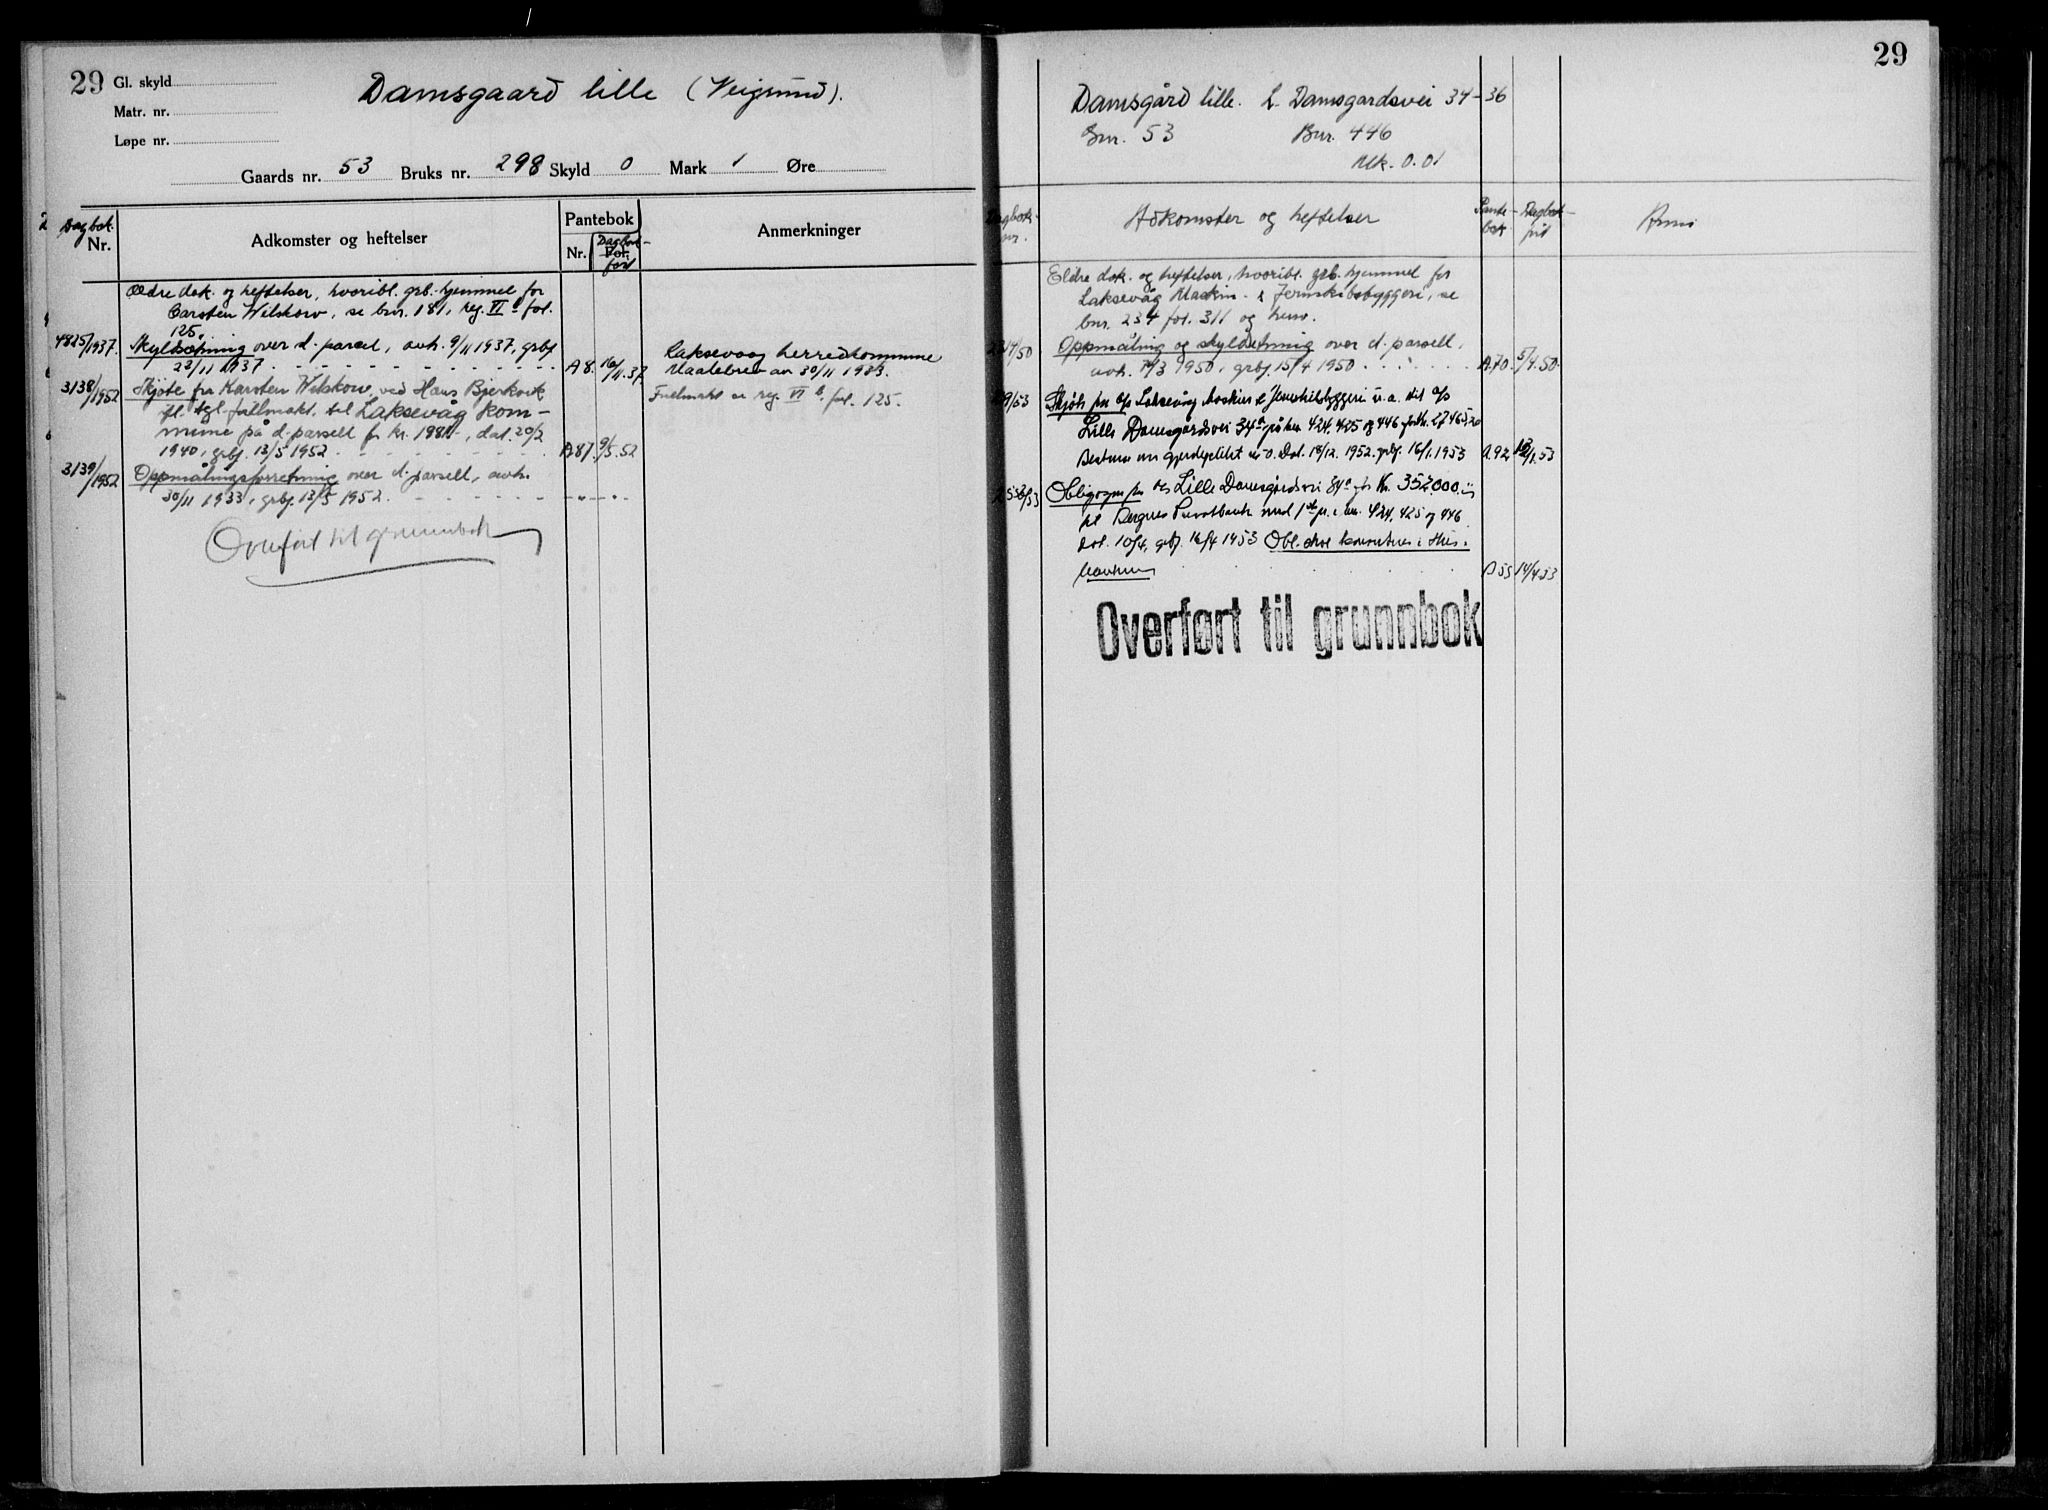 29
Gl. skyld
Matr. nr.
Løpe nr.
Damsgaard lille (Veigrund).
Gaards nr. 53 Bruks nr. 298 Skyld 0 Mark 1 Øre
Dagbok. Nr.
Adkomster og heftelser
Pantebok
Nr. Fol. Dagbok-ført
Anmerkninger
Ældre dok. og heftelser, hvoribl. grb.-hjemmel for
Carsten Wilskow, se bnr. 181, reg. VI b fol.
125.
4825/1937. Skyldsetning over d. parcel, avh. 9/11 1937, grbf
23/11 1937 A 8. 16/11.37
Laksevaag herredskommune
Maalebrev av 30/11 1933.
3138/1952 Skjøte fra Karsten Wilskow ved Hans Bjerkvik
ifl. tgl. fullmakt til Laksevåg kom-
mune på d. parsell for kr. 1981.-, dat. 20/2
1940, grbf. 13/5 1952 A 87. 9/5.52
Fullmakt se reg. VI b. fol. 125.
3139/1952 Oppmålingsforretning over d. parsell, avh.
30/11 1933, grbf. 13/5 1952. - " - " -
Overført til grunnbok
29
Damsgård lille. L. Damsgardsvei 34-36
Gnr. 53 Bnr. 446
Mk. 0.01
Dagbok-nr.
Adkomster og heftelser
Pante-bok
Dagbok-ført
Anm.
Eldre dok. og heftelser, hvoribl. grb. hjemmel for
Laksevåg Maskin- & Jernskibsbyggeri, se
bnr. 234 fol. 311 og henv.
/50 Oppmåling og skyldsetning over d. parsell,
avh. /3 1950, grbf. 15/4 1950 A.70. 5/4.50.
/53 Skjøte fra A/S Laksevåg Maskin & Jernskibsbyggeri u.a. til A/S
Lille Damsgårdsvei 34a på bnr. 424, 425 og 446 for kr. 27465,20
Bestem. om gjerdeplikt m.v. Dat. 18/12. 1952. grbf. 16/1.1953 A.92 /1.53
/53 Obligasjon fra A/S Lille Damsgårdsvei 34a for Kr. 352.000.-
til Bergens Privatbank med 1ste pr. i bnr. 424, 425 og 446
Dat. 10/4, grbf. 16/4 1953 Obl. skal konverteres i Hus-
banken B 55 14/4.53
Overført til grunnbok